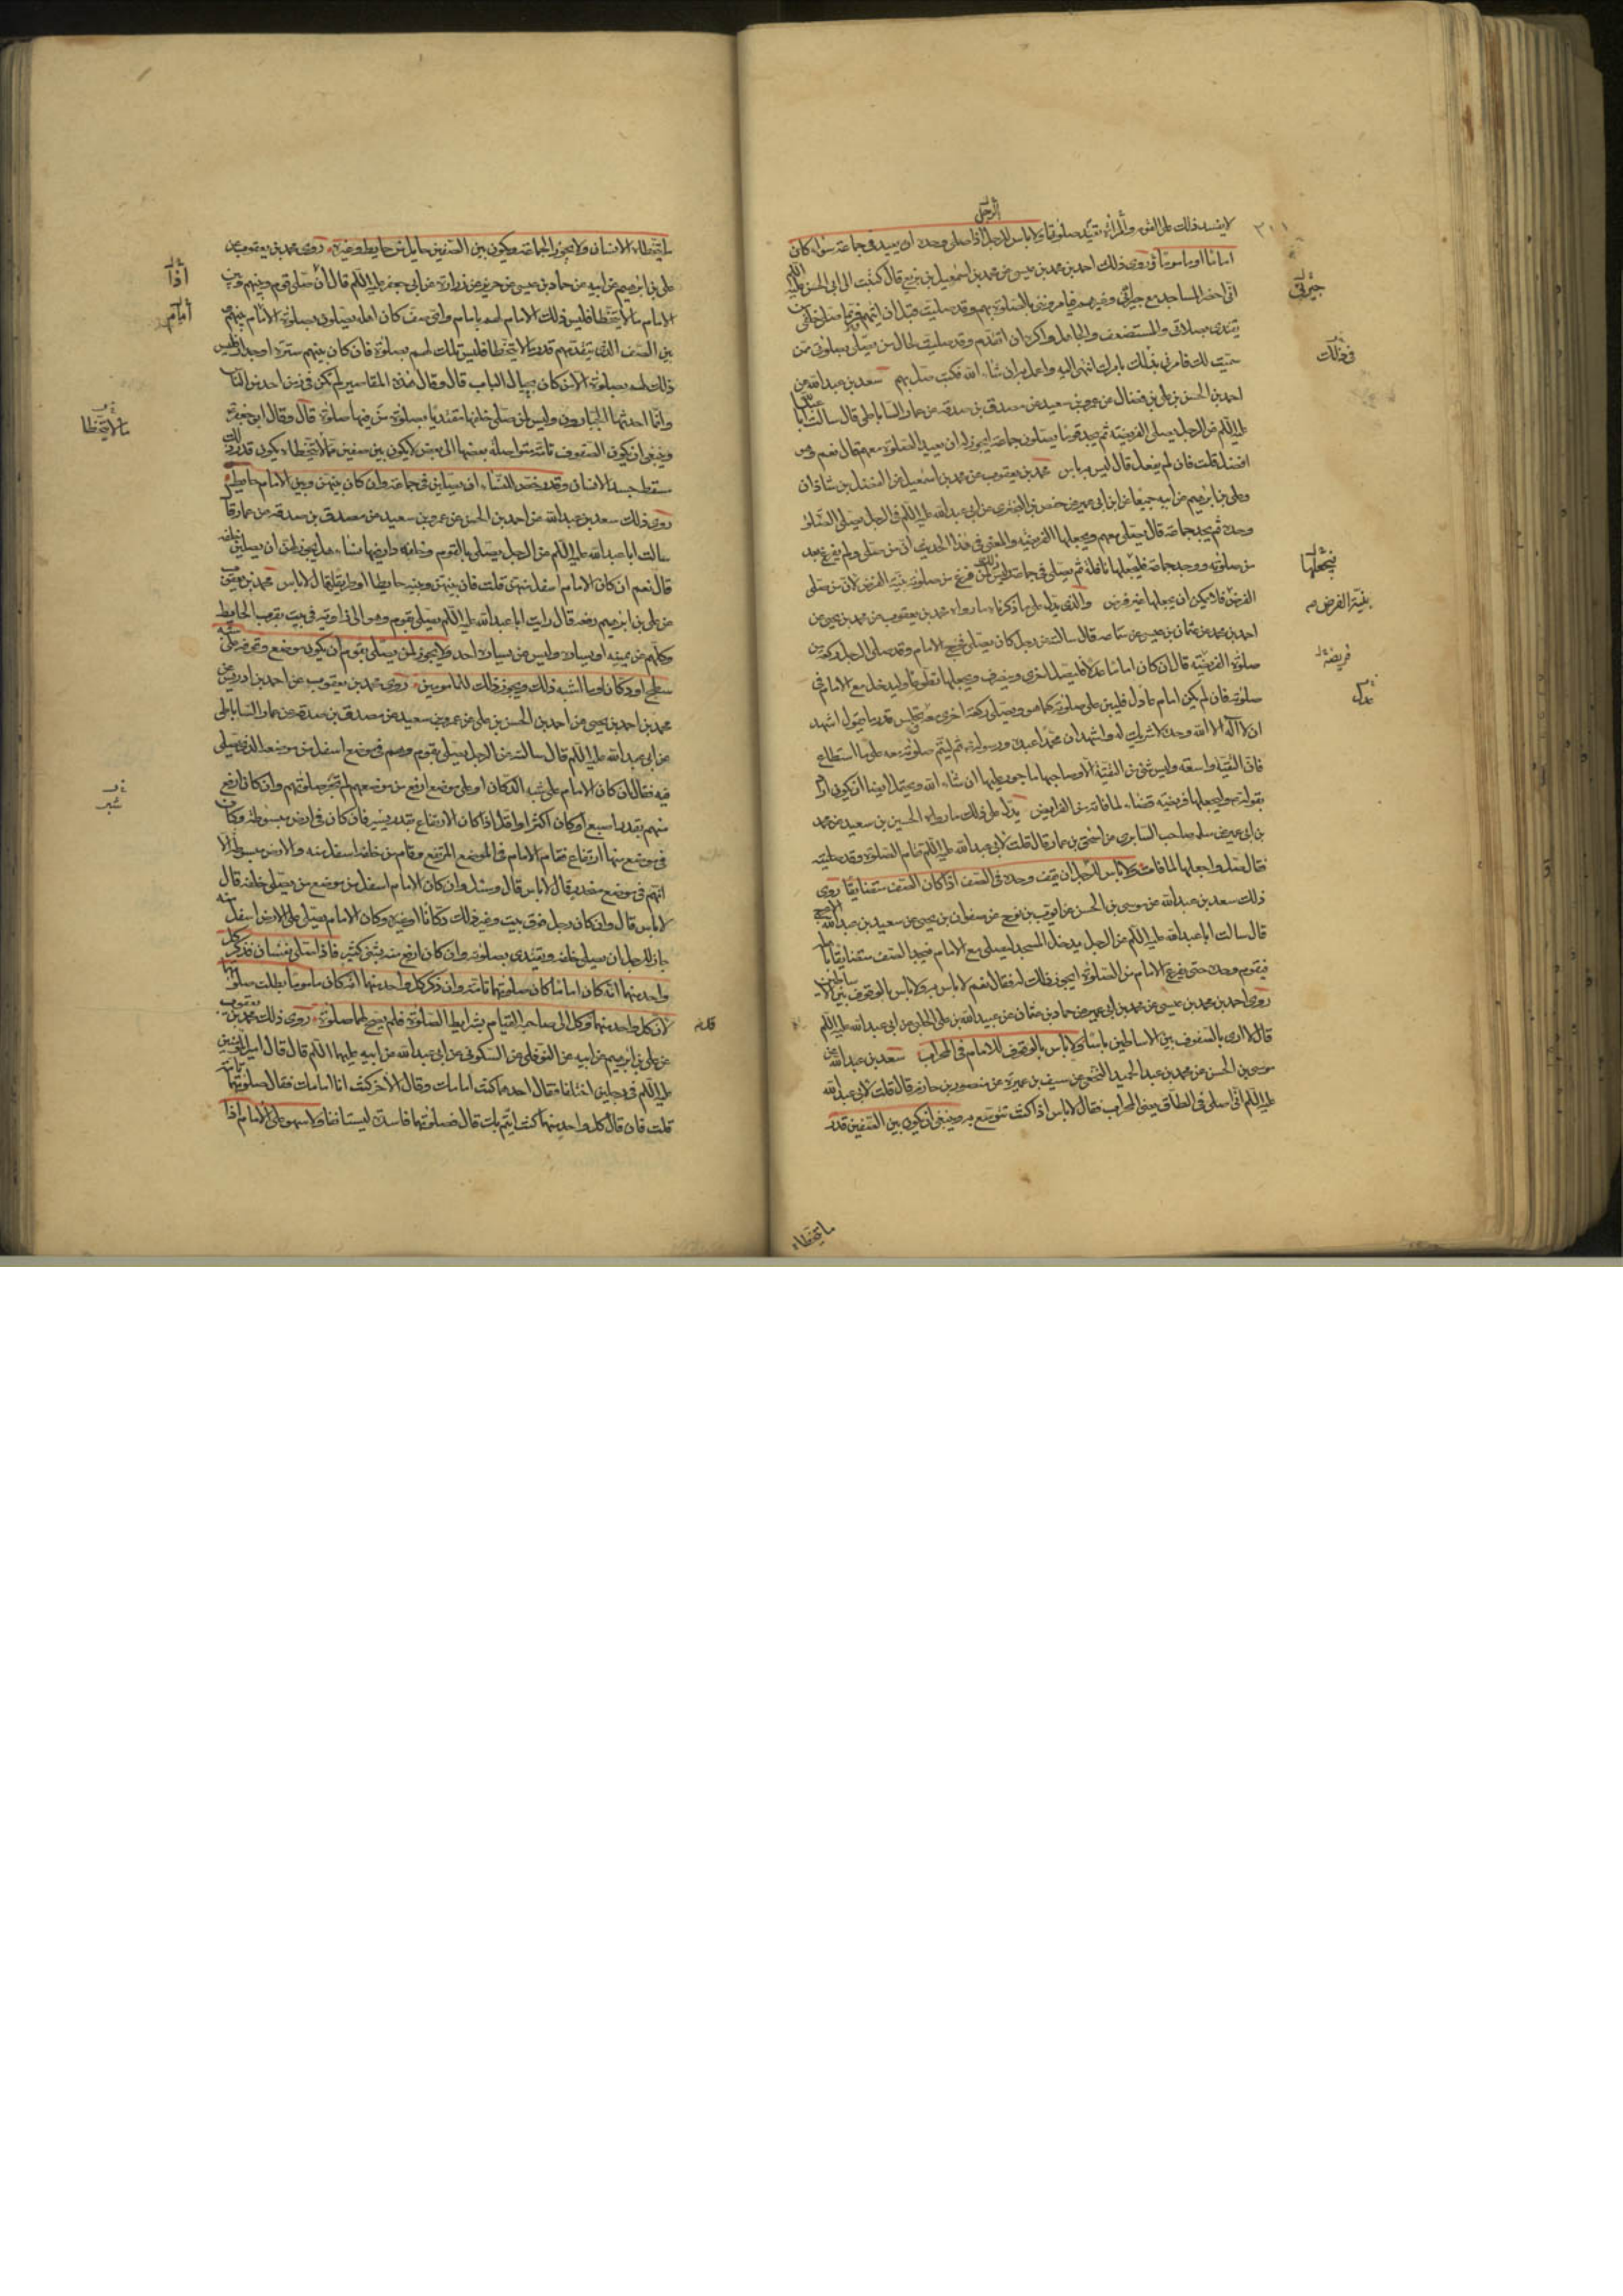 الرجل
لا يفسد ذلك على الفور والمرأة تعيد صلوتها ولا باس للرجل اذا صلى وحده ان يعيد في جماعة سواء كان
اماما او ماموما روى ذلك احمد بن محمد بن عيسى عن محمد بن اسمعيل بن بزيع قال كتبت الى ابي الحسن عليه السلام
انى احضر المساجد مع جيرتى وغيرهم فيامروننى بالصلوة بهم وقد صليت قبل ان اتيهم وربما صلى خلفى من
يقتدى بصلاتى والمستضعف والجاهل واكره ان اتقدم وقد صليت لحال من يصلى بصلوتى ممن
سميت لك فامرنى فى ذلك بامرك انتهى اليه واعمل به ان شاء الله فكتب صل بهم سعد بن عبد الله عن
احمد بن الحسن بن على بن فضال عن عمرو بن سعيد عن مصدق بن صدقه عن عمار الساباطى قال سالت ابا عبد الله
عليه السلام عن الرجل يصلى الفريضة ثم يجد قوما يصلون جماعة ايجوز له ان يعيد الصلوة معهم قال نعم وهو
افضل قلت فان لم يفعل قال ليس به باس محمد بن يعقوب عن محمد بن اسمعيل عن الفضل بن شاذان
وعلى بن ابرهيم عن ابيه جميعا عن ابن ابى عمير عن حفص بن البخترى عن ابى عبد الله عليه السلام فى الرجل يصلى الصلوة
وحده ثم يجد جماعة قال يصلى معهم ويجعلها الفريضة والمعنى فى هذا الحديث ان من صلى ولم يفرغ بعد
من صلوته ووجد جماعة فليجعلها نافلة ثم يصلى فى جماعة وليس ذلك لمن فرغ من صلوته بنية الفرض لان من صلى
الفرض فلا يمكن ان يجعلها غير فرض والذى يدل على ما ذكرناه ما رواه محمد بن يعقوب عن محمد بن يحيى عن
احمد بن محمد عن عثمان بن عيسى عن سماعه قال سالته عن رجل كان يصلى فخرج الامام وقد صلى الرجل ركعة من
صلوة الفريضة قال ان كان اماما عدلا فليصل اخرى وينصرف ويجعلها تطوعا وليدخل مع الامام فى
صلوته فان لم يكن امام عادل فليبن على صلوته كما هو ويصلى ركعة اخرى معه يجلس قدر ما يقول اشهد
ان لا اله الا الله وحده لا شريك له واشهد ان محمدا عبده ورسوله ثم ليتم صلوته معه على ما استطاع
فان التقية واسعة وليس شئ من التقية الا وصاحبها ماجور عليها ان شاء الله ويحتمل ايضا ان يكون اراد
بقوله ويجعلها فريضة قضاء لما فاته من الفرايض يدل على ذلك ما رواه الحسين بن سعيد عن محمد
بن ابى عمير عن سلمه صاحب السابرى عن اسحق بن عمار قال قلت لابى عبد الله عليه السلام تقام الصلوة وقد صليت
فقال صل واجعلها لما فات ولا باس للرجل ان يقف وحده فى الصف اذا كان الصف متضايقا روى
ذلك سعد بن عبد الله عن موسى بن الحسن عن ايوب بن نوح عن صفوان بن يحيى عن سعيد بن عبد الله الاعرج
قال سالت ابا عبد الله عليه السلام عن الرجل يدخل المسجد ليصلى مع الامام فيجد الصف متضايقا باهله
فيقوم وحده حتى يفرغ الامام من الصلوة ايجوز ذلك له فقال نعم لا باس به ولا باس بالوقوف بين الاساطين
روى احمد بن محمد بن عيسى عن محمد بن ابى عمير عن حماد بن عثمان عن عبيد الله بن على الحلبى عن ابى عبد الله عليه السلام
قال لا ارى بالصفوف بين الاساطين باسا ولا باس بالوقوف للامام فى المحراب سعد بن عبد الله عن
موسى بن الحسن عن محمد بن عبد الحميد النخعى عن سيف بن عميرة عن منصور بن حازم قال قلت لابى عبد الله
عليه السلام انى اصلى فى الطاق يعنى المحراب فقال لا باس اذا كنت تتوسع به وينبغى ان يكون بين الصفين قدر
ما يتخطاه
٣١١
جيرتى
فى ذلك
فيجعلها
بنية الفرض صح
فريضة
عدل
ما يتخطاه الانسان ولا يجوز الجماعة ويكون بين الصفين حايل من حايط وغيره روى محمد بن يعقوب عن
على بن ابرهيم عن ابيه عن حماد بن عيسى عن حريز عن زرارة عن ابى جعفر عليه السلام قال ان صلى قوم وبينهم وبين
الامام ما لا يتخطا فليس ذلك الامام لهم بامام واى صف كان اهله يصلون بصلوة الامام وبينهم
بين الصف الذى يتقدمهم قدر ما لا يتخطا فليس تلك لهم بصلوة فان كان بينهم سترة او جدار فليس
ذلك لهم بصلوة الا من كان بحيال الباب قال وقال هذه المقاصير لم تكن فى زمن احد من الناس
وانما احدثها الجبارون وليس لمن صلى خلفها مقتديا بصلوة من فيها صلوة قال وقال ابو جعفر
وينبغى ان تكون الصفوف تامة متواصلة بعضها الى بعض لا يكون بين صفين ما لا يتخطاء يكون قدر ذلك
مسقط جسد الانسان وقد رخص للنساء ان يصلين فى جماعة وان كان بينهن وبين الامام حايط
روى ذلك سعد بن عبد الله عن احمد بن الحسن عن عمرو بن سعيد عن مصدق بن صدقه عن عمار قال
سالت ابا عبد الله عليه السلام عن الرجل يصلى بالقوم وخلفه دار فيها نساء هل يجوز لهن ان يصلين خلفه
قال نعم ان كان الامام اسفل منهن قلت فان بينهن وبينه حايطا او طريقا قال لا باس محمد بن يعقوب
عن على بن ابرهيم رفعه قال رايت ابا عبد الله عليه السلام يصلى بقوم وهو الى زاوية فى بيت بقرب الحايط
وكلهم عن يمينه او يساره وليس عن يساره احد ولا يجوز لمن يصلى بقوم ان يكون موضعه
سطح او دكان او ما اشبه ذلك ويجوز ذلك للمامومين روى محمد بن يعقوب عن احمد بن ادريس عن
محمد بن احمد بن يحيى عن احمد بن الحسن بن على عن عمرو بن سعيد عن مصدق بن صدقه عن عمار الساباطى
عن ابى عبد الله عليه السلام قال سالته عن الرجل يصلى بقوم وهم فى موضع اسفل من موضعه الذى يصلى
فيه فقال ان كان الامام على شبه الدكان او على موضع ارفع من موضعهم لم تجز صلوتهم وان كان ارفع
منهم بقدر اصبع او كان اكثر او اقل اذا كان الارتفاع بقدر يسير فان كان فى ارض مبسوطة وكان
فى موضع منها ارتفاع فقام الامام فى الموضع المرتفع وقام من خلفه اسفل منه والارض مبسوطة الا
انهم فى موضع منحدر قال لا باس قال وسئل وان كان الامام اسفل من موضع من يصلى خلفه قال
لا باس قال وان كان رجل فوق بيت وغير ذلك دكانا او غيره وكان الامام يصلى على الارض اسفل منه
جاز للرجل ان يصلى خلفه ويقتدى بصلوته وان كان ارفع منه بشئ كثير فاذا صلى نفسان فذكر كل
واحد منهما انه كان اماما كان صلوتهما تامة وان ذكر كل واحد منهما انه كان ماموما بطلت صلوتهما
لان كل واحد منهما وكل الى صاحبه القيام بشرايط الصلوة فلم يصح لهما صلوة روى ذلك محمد بن يعقوب
عن على بن ابرهيم عن ابيه عن النوفلى عن السكونى عن ابى عبد الله عن ابيه عليهما السلام قال قال امير المؤمنين
عليه السلام فى رجلين اختلفا فقال احدهما كنت امامك وقال الاخر كنت انا امامك فقال صلوتهما تامة
قلت فان قال كل واحد منهما كنت ائتم بك قال فصلوتهما فاسدة ليستانفا ولا سهو على الامام اذا
أذا
أمام
ما لا يتخطا
شبر